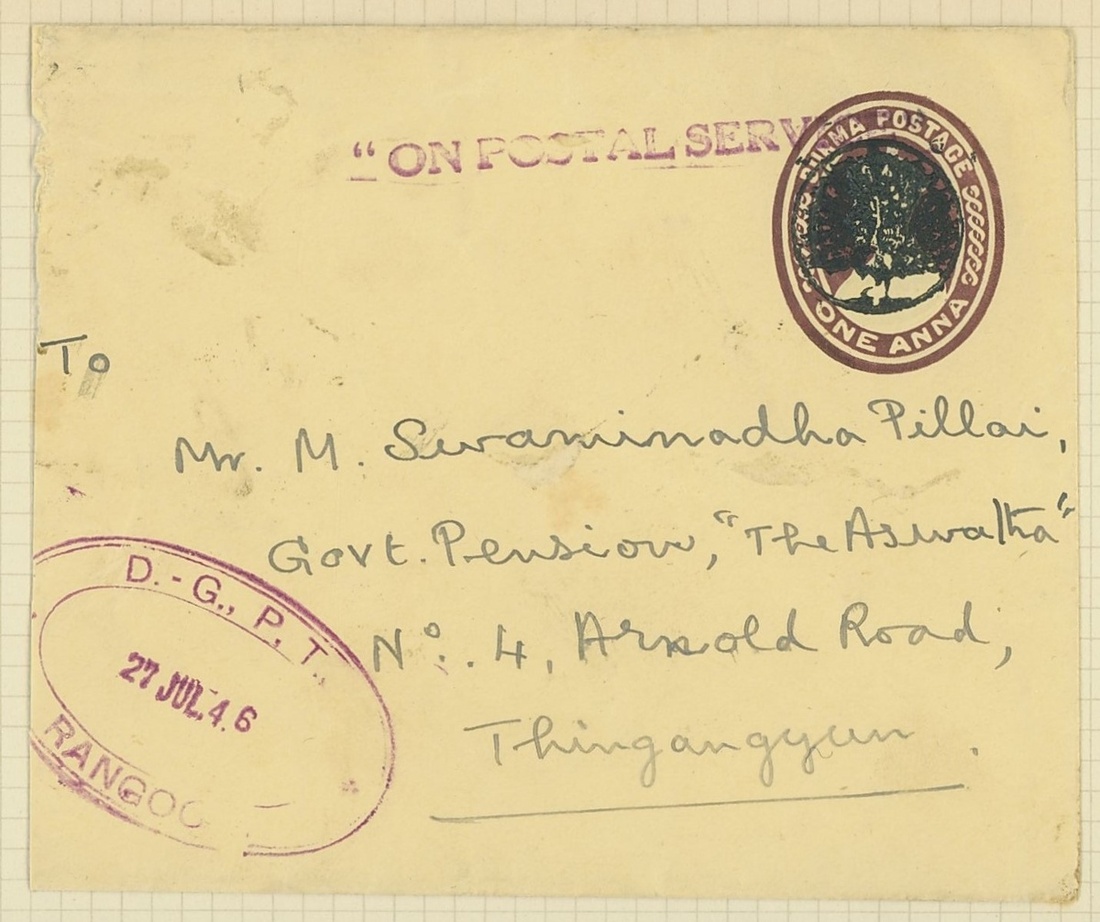 “ON POSTAL SERV
BURMA POSTAGE
ONE ANNA
To
Mr. M. Swaminadha Pillai,
Govt. Pension, “The Aswattha”
No. 4, Arnold Road,
Thingangyun.
D.-G., P. T.,
27 JUL. 46
RANGOO